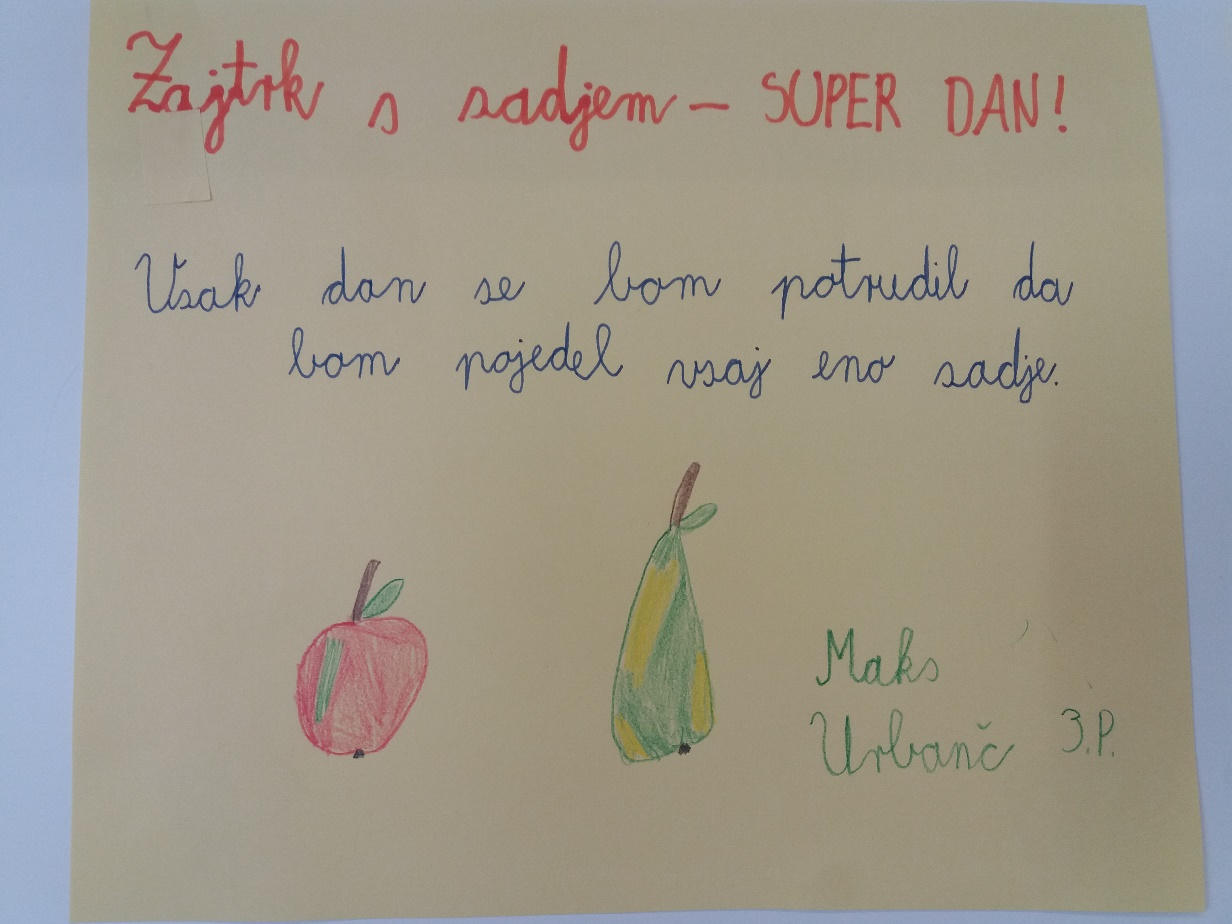 Zajtrk s sadjem - SUPER DAN!
Vsak dan se bom potrudil da
bom pojedel vsaj eno sadje.
Maks
Urbanč 3.P.